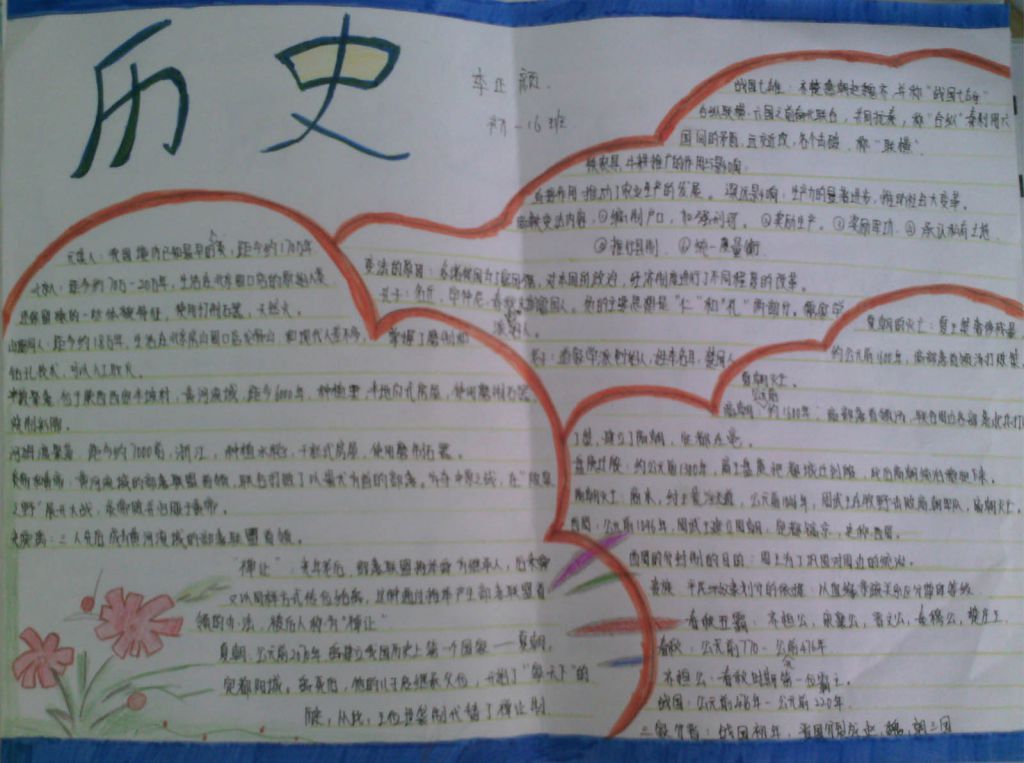 历史
李正颜.
初一16班
元谋人：我国境内已知最早的人类，距今约170万年
北京人：距今约70万-20万年，生活在北京周口店的原始人类
还保留猿的一些体貌特征，使用打制石器，天然火。
山顶洞人：距今约1.8万年，生活在北京周口店龙骨山 和现代人差不多，掌握了磨制和
钻孔技术，可以人工取火。
半坡聚落：位于陕西西安半坡村，黄河流域，距今6000年，种植粟，半地穴式房屋，使用磨制石器
烧制彩陶。
河姆渡聚落：距今约7000年，浙江，种植水稻，干栏式房屋，使用磨制石器。
炎帝和黄帝：黄河流域的部落联盟首领，联合打败了以蚩尤为首的部落。
之野"展开大战，
尧舜禹：三人先后成为黄河流域的部落联盟首领。
"禅让"：尧年老后，部落联盟推举舜为继承人，后来舜
又以同样方式传位给禹，这种通过推举产生部落联盟首
领的办法，被后人称为"禅让"
夏朝：公元前2070年，禹建立我国历史上第一个国家——夏朝，
定都阳城。禹死后，他的儿子启继承父位，开创了"家天下"的
局，从此，王位世袭制代替了禅让制
战国七雄：齐楚秦燕赵魏韩，并称"战国七雄"
合纵联横：六国之前
国间的矛盾，远交近攻，各个击破，称"联横"
铁农具、牛耕推广的作用与影响：
直接作用：推动了农业生产的发展。深远影响：生产力的显著进步，推动社会大变革。
商鞅变法内容：①编制户口，加强刑罚。②奖励生产。③奖励军功。④承认私有土地
⑤推行县制。⑥统一度量衡
变法的原因：各诸侯国为了富国强，对本国的政府，经济制度进行了不同程度的改革。
孔子：名丘，字仲尼，春秋末期鲁国人。他的主要思想是"仁"和"礼"两部分。儒家学
派创始人。
老子：道家学派创始人，姓李名耳，楚国人
夏朝的灭亡：夏王桀
约公元前1600年，商部落首领汤打败桀
夏朝灭亡。
商朝：公元前约1600年，商部落首领汤，联合周边各部
了桀，建立了商朝，定都在亳。
盘庚迁殷：约公元前1300年，商王盘庚把都城迁到殷，此后商朝统治稳定下来。
商朝灭亡：商末，纣王荒淫无道，公元前1046年，周武王在牧野击败商朝军队，商朝灭亡。
西周：公元前1046年，周武王建立周朝，定都镐京，史称西周。
西周的分封制的目的：周王为了巩固对周边的统治。
春秋五霸：齐桓公，宋襄公，晋文公，秦穆公，楚庄王
春秋：公元前770-公元前476年
齐桓公：春秋时期第一位霸主。
战国：公元前475年-公元前220年
三家分晋：战国初年，晋国分裂成赵，魏，韩三国